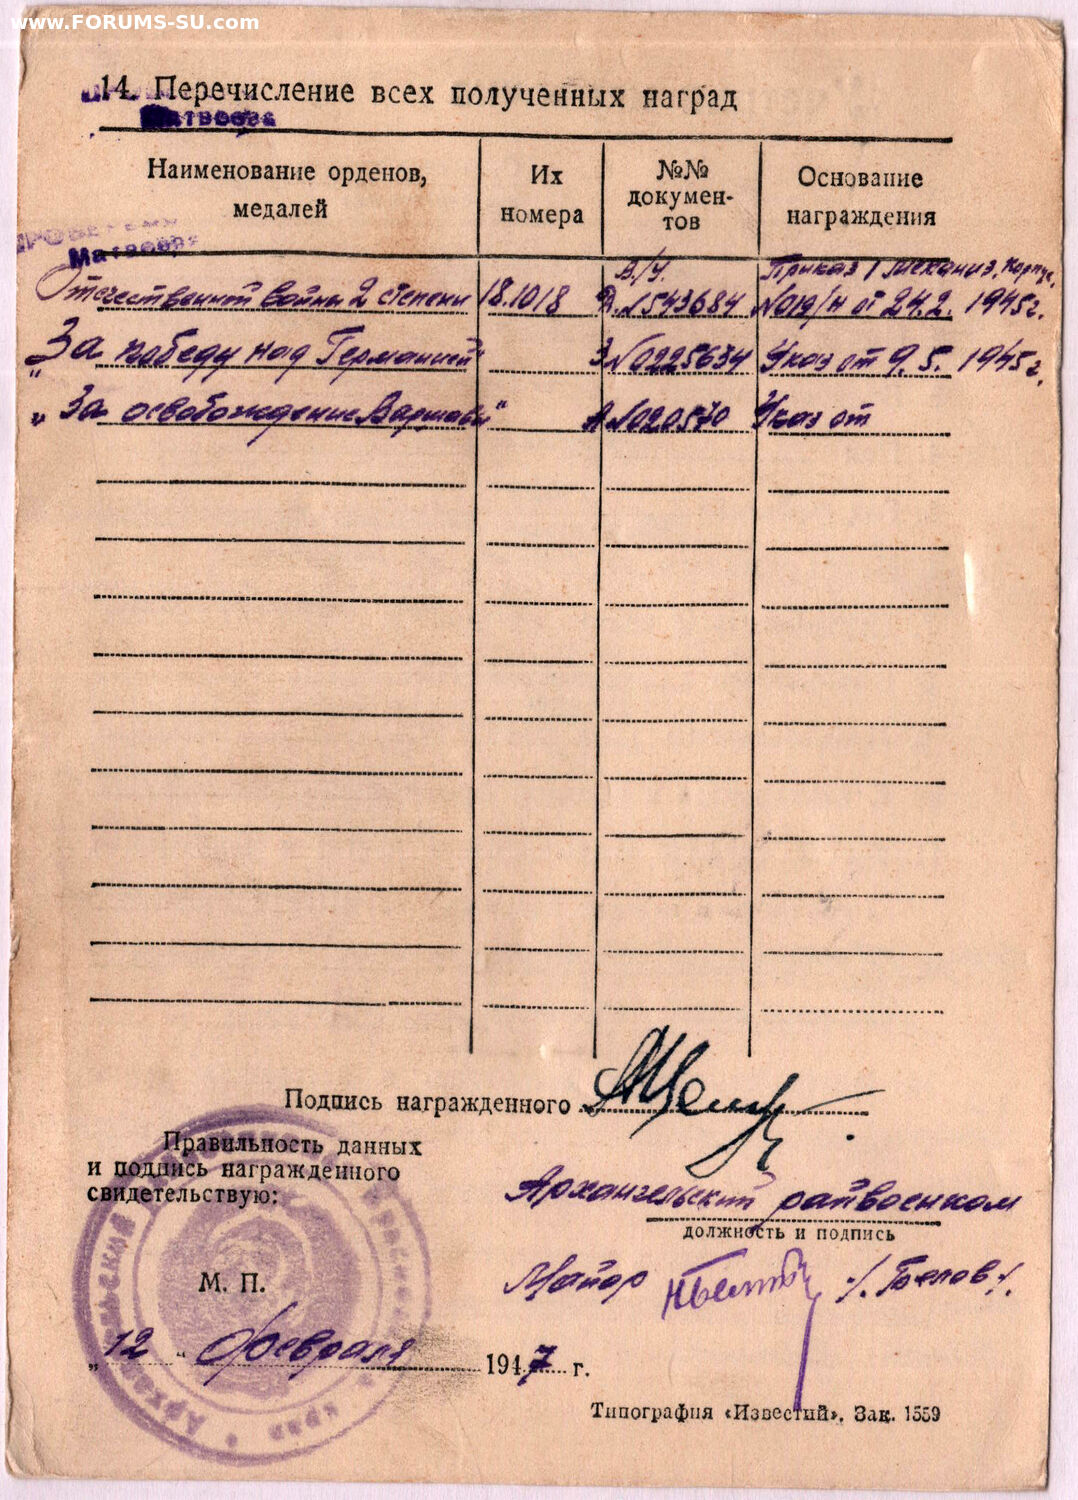 www.FORUMS-SU.com
14. Перечисление всех полученных наград
Матвеева
Наименование орденов, медалей
Их номера
№№ докумен-тов
Основание награждения
Матвеева
В/У. Приказ 1 механиз. корпус.
Отечественной войны 2 степени 181018 № 543684 №019/н от 24.2. 1945г.
"За победу над Германией" З №0225634 Указ от 9.5. 1945г.
"За освобождение Варшавы" А №020570 Указ от
Подпись награжденного
Правильность данных
и подпись награжденного
свидетельствую:
Архангельский райвоенком
должность и подпись
М. П.
Майор /Белов/.
„12“ февраля 1947 г.
Типография «Известий». Зак. 1559